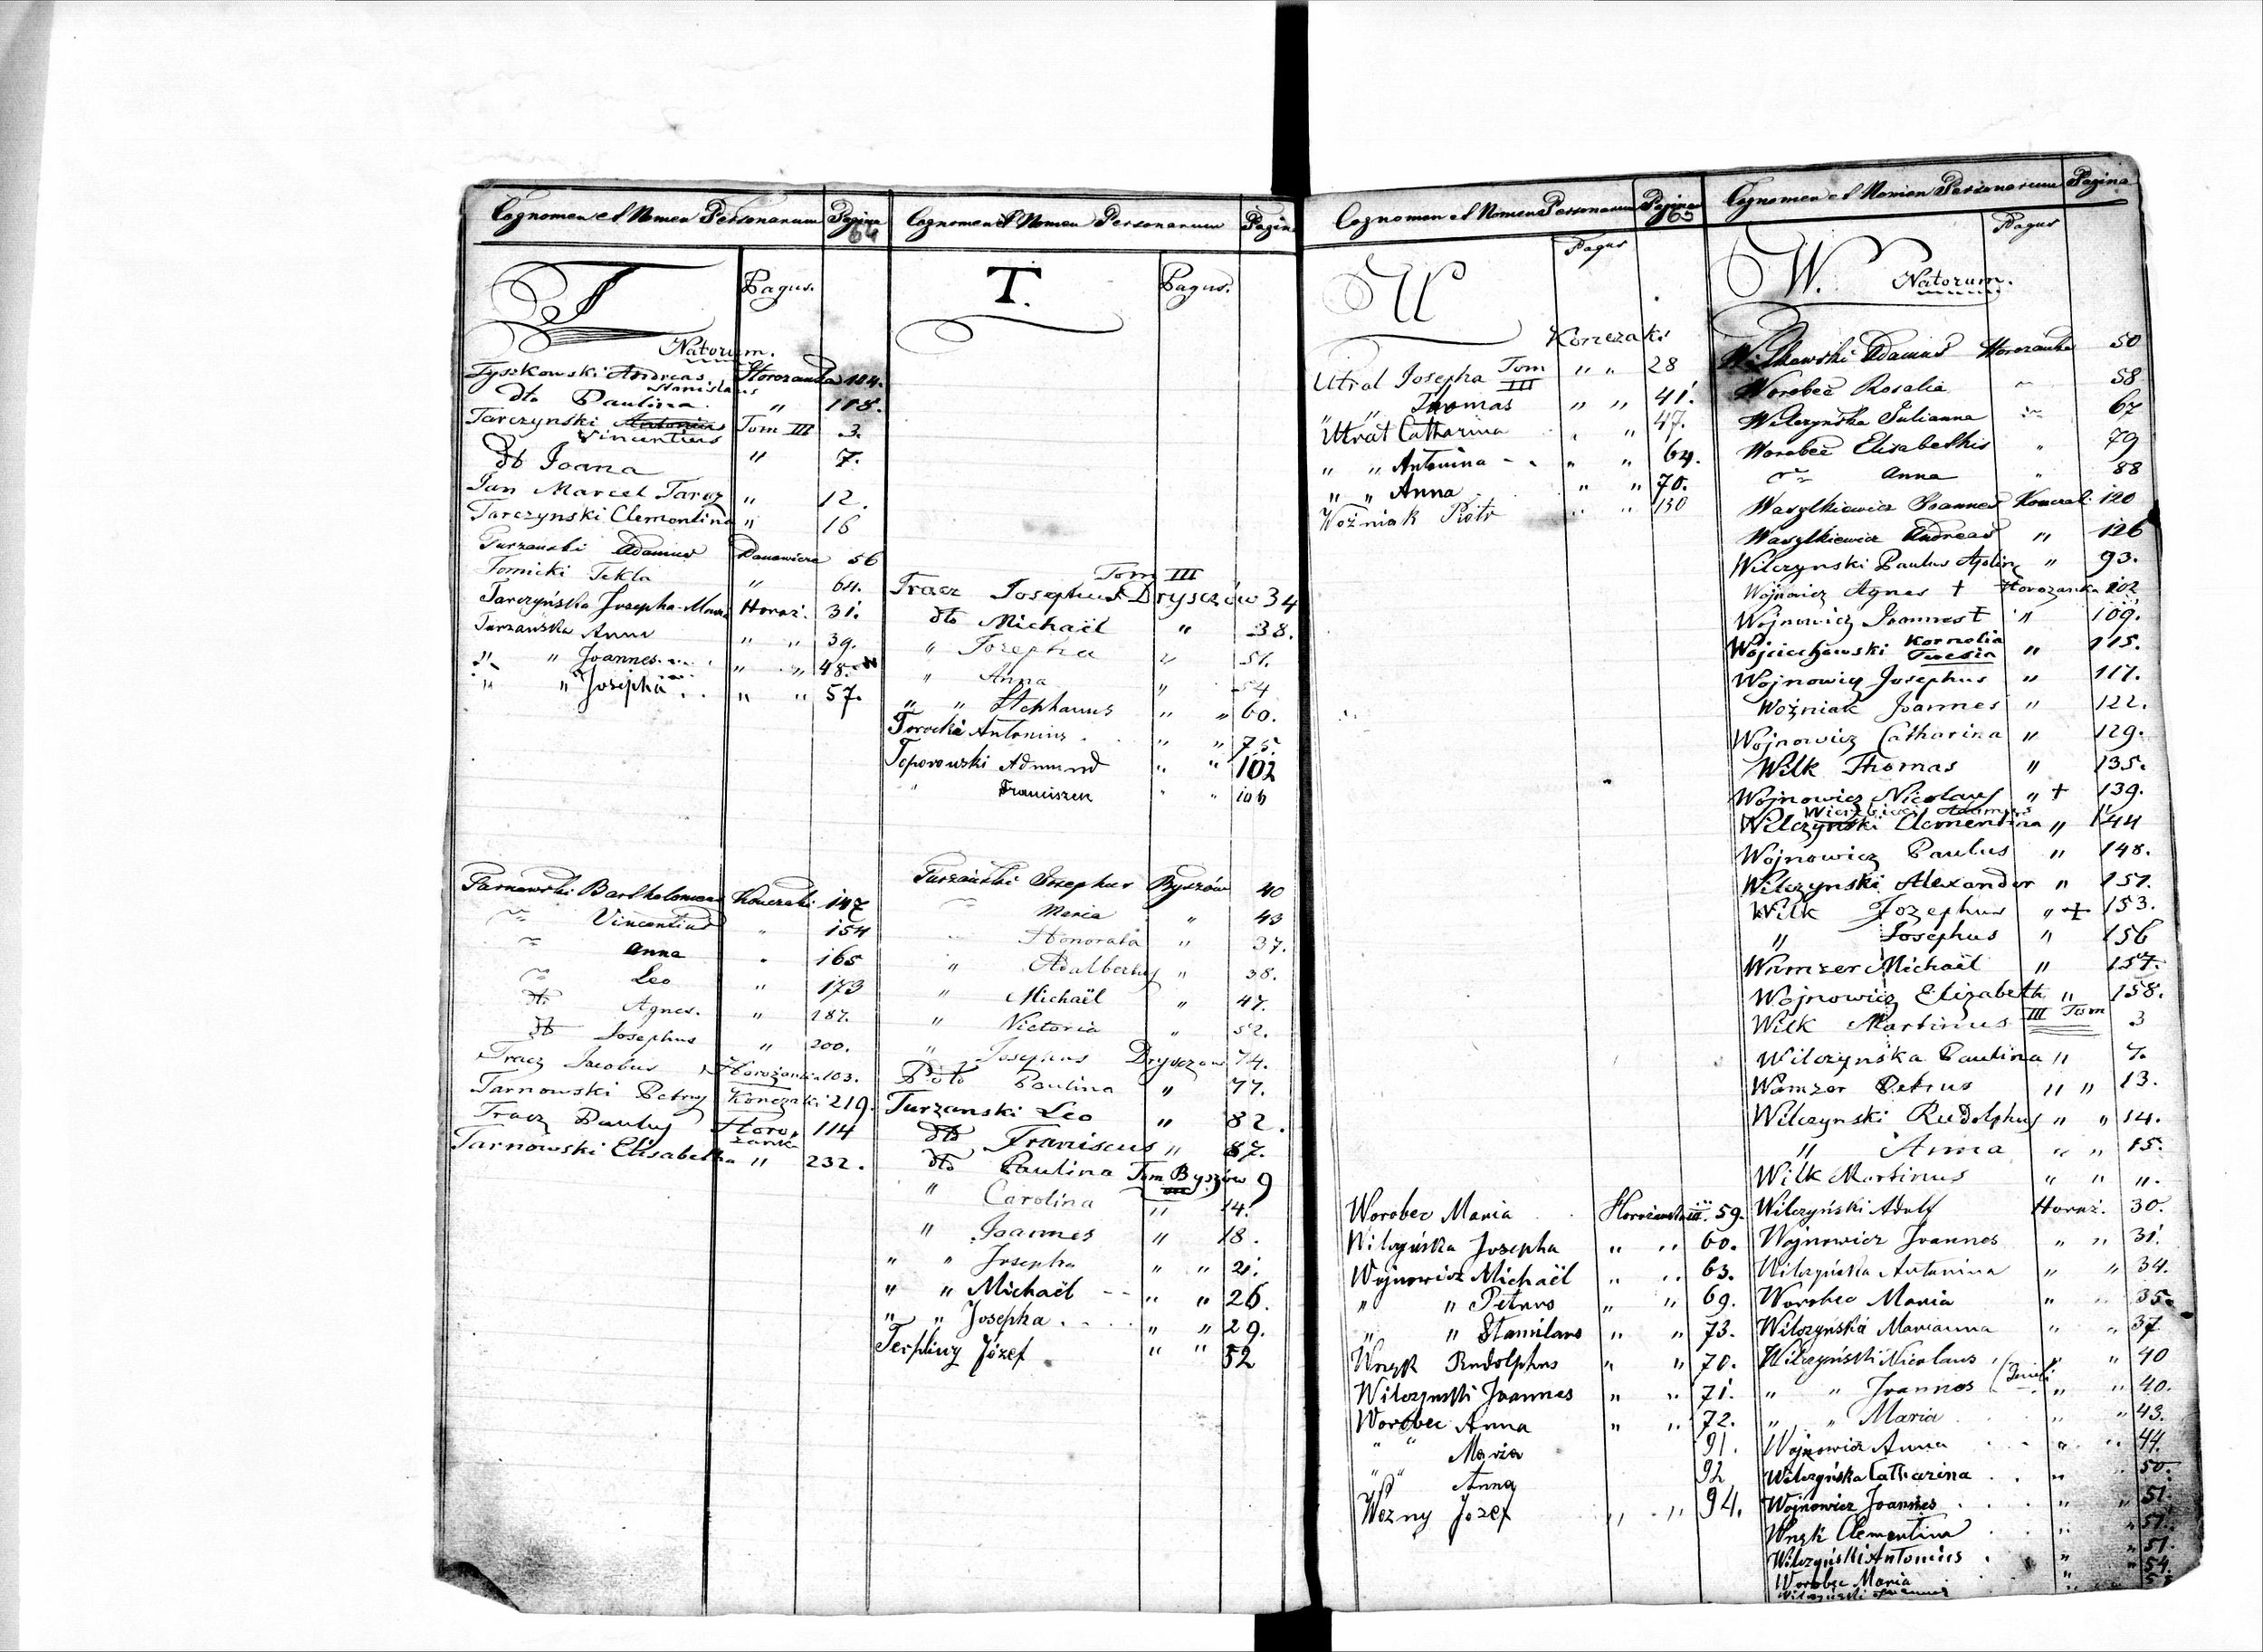 Cognomen et Nomen Personarum Pagina
64
T Pagus.
Natorum.
Tyszkowski Andreas Stanislaus Horozanka 184.
dto Paulina " 118.
Tarczynski Antonius Vincentius Tom III 3.
dto Joana " 7.
Jan Marcel Tarcz " 12.
Tarczynski Clemontina " 16
Turzanski Adamus 56
Tomicki Tekla " 64.
Tarczyńska Josepha-Maria Horoż. 31.
Turzańska Anna " " 39.
" " Joannes " " 48.
" " Josepha " " 57.
Tarnowski Bartholomeus Konczaki 147
Vincentius " 154
Anna " 165
Leo " 173
dto Agnes. " 187.
dto Josephus " 200.
Tracz Jacobus Horożanka 103.
Tarnowski Petrus Konczaki 219.
Tracz Paulus Horożanka 114
Tarnowski Elisabetha " 232.
Cognomen et Nomen Personarum Pagina
T. Pagus.
Tom III
Tracz Josephus Dryszczów 34
dto Michaël " 38.
" Jozepha " 51.
" Anna " 54
" " Stephanus " " 60.
Torocki Antonius " " 75.
Toporowski Admund " " 102
" Franciszek " " 106
Turzański Josephus Byszów 40
Maria " 43
Honorata " 37.
" Adalbertus " 38.
" Michaël " 47.
" Victoria " 52.
" Josephus Dryszczow 74.
Dto Paulina " 77.
Turzanski Leo " 82.
dto Franiscus " 87.
dto Paulina Tom III Byszów 9
" Carolina " 14.
" Joannes " 18.
" " Josepha " " 21.
" " Michaël " " 26.
" " Josepha " " 29.
Terpliwy Józef " " 52
Cognomen et Nomen Personarum Pagina
65
U Pagus
Konczaki
Utrat Josepha Tom III " " 28
" " Thomas " " 41.
Utrat Catharina " " 47.
" " Antonina " " 64.
" " Anna " " 70.
Woźniak Piotr " " 130
Worobec Maria Horożanka III. 59.
Wilczyńska Josepha " " 60.
Wojnowicz Michaël " " 63.
" " Petrus " " 69.
" " Stanislaus " " 73.
Wnyk Rudolphus " " 70.
Wilczyński Joannes " " 71.
Worobec Anna " " 72.
" " Maria 91.
" " Anna 92
Woźny Jozef " " 94.
Cognomen et Nomen Personarum Pagina
W. Natorum. Pagus
Witkowski Adamus Horozanka 50
Worobec Rosalia 58
Wilczyńska Julianna 67
Worobec Elisabethis " 79
Anna " 88
Wasylkiewicz Joannes Konczaki 120
Wasylkiewicz Andreas " 126
Wilczynski Paulus " 93.
Wojnowicz Agnes + Horozanka 102
Wojnowicz Joannes + " 109.
Wojciechowski Kornelia " 115.
Wojnowicz Josephus " 117.
Woźniak Joannes " 122.
Wojnowicz Catharina " 129.
Wilk Thomas " 135.
Wojnowicz Nicolaus " + 139.
Wierzbicki Adamus "
Wilczynski Clementina " 144
Wojnowicz Paulus " 148.
Wilczynski Alexander " 151.
Wilk Jozephus " + 153.
" Josephus " 156
Wamzer Michaël " 157.
Wojnowicz Elizabeth " 158.
Wilk Martinus III Tom 3
Wilczynska Paulina " 7.
Wamzer Petrus " " 13.
Wilczynski Rudolphus " " 14.
" Anna " " 15.
Wilk Martinus " " ".
Wilczyński Adolf Horoż. 30.
Wojnowicz Joannes " " 31.
Wilczyńska Antonina " " 34.
Worobec Maria " " 35.
Wilczyńska Marianna " " 37
Wilczyński Nicolaus " " 40
" " Joannes (Gemeli " " 40.
" " Maria " " 43.
Wojnowicz Anna " " 44.
Wilczyńska Catharina " " 50.
Wojnowicz Joannes " " 51.
Wnyk Clementina " " 51.
Wilczyński Antonius " " 51.
Worobec Maria " " 54.
Wilczyński Joannes